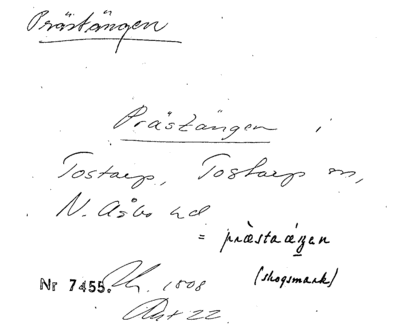 Prästängen
Prästängen i
Tostarp, Tostarp sn,
N. Åsbo hd
= præstaǽŋen
(skogsmark)
Nr 7455. Lr. 1808
Akt 22.